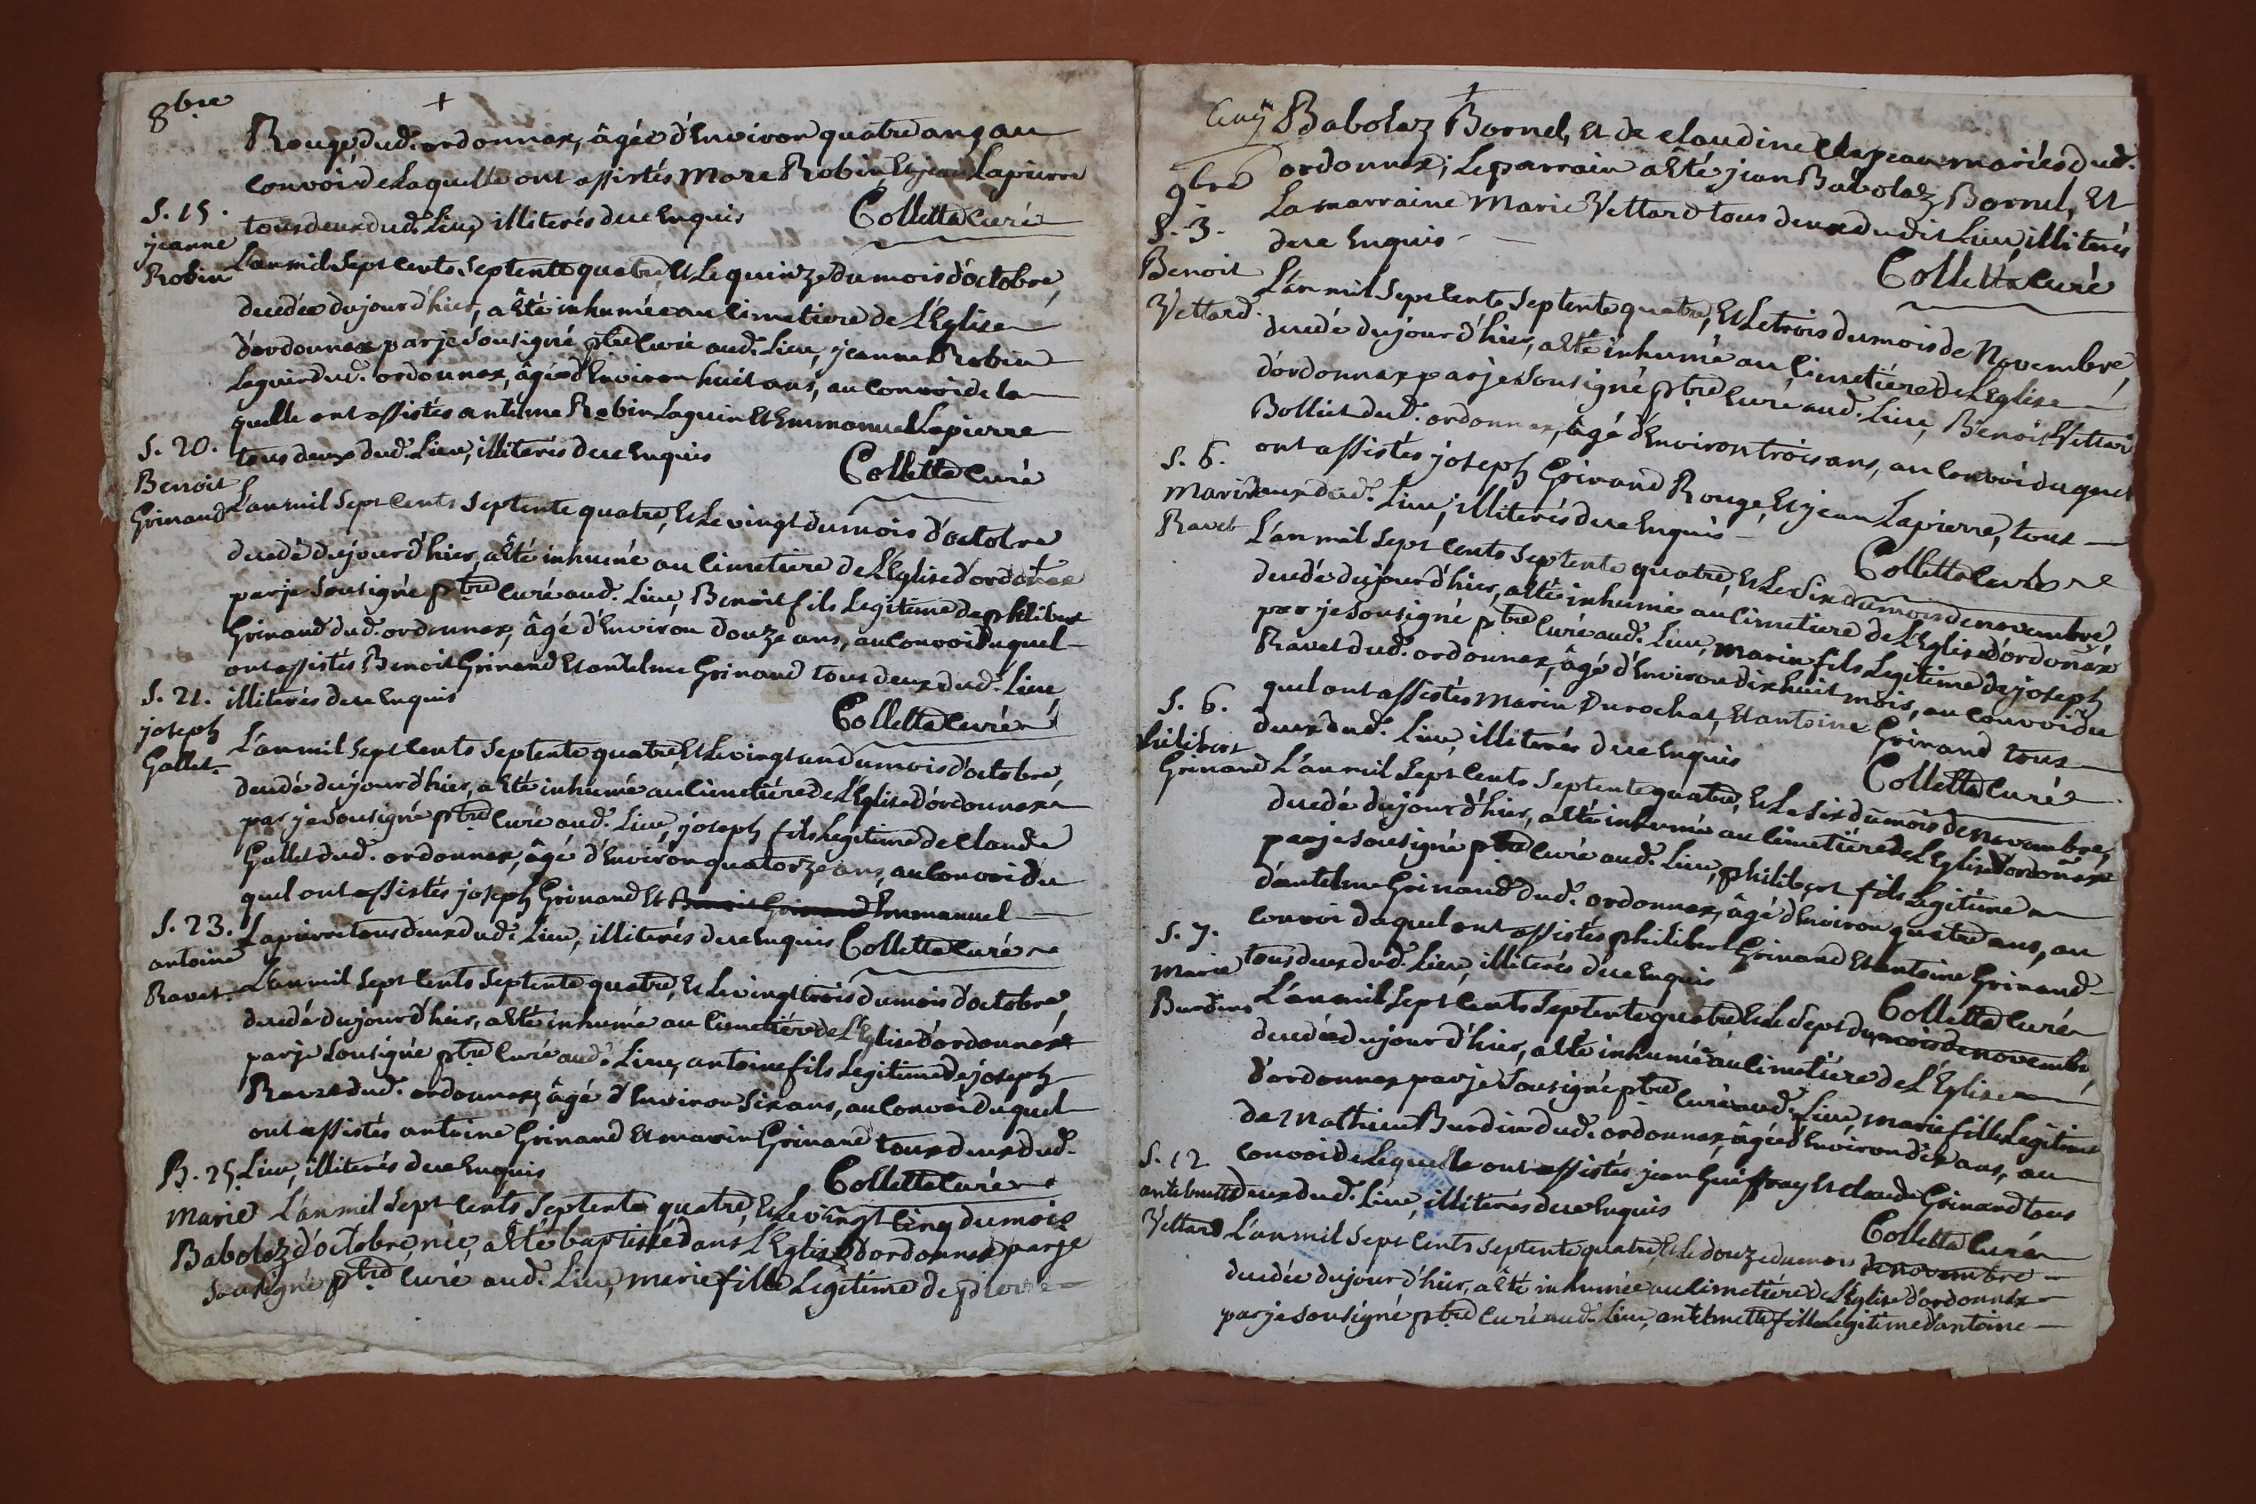 8bre
+
Rouge dud. ordonnax, âgée d'Environ quatre ans, au
convoi de Laquelle ont assistés Marc Robin Et jean Lapierre
tous deux dud. Lieu, illiterés de ce Enquis Collette Curé
S. 15.
jeanne
Robin
L'an mil Sept Cents Septente quatre, Et Le quinze du mois d'octobre,
decedée du jour d'hier, a Eté inhumée au Cimetiere de L'Eglise
d'ordonnax par je Sousigné ptre Curé aud. Lieu, jeanne Robin
Laguin dud. ordonnax, âgée d'Environ huit ans, au Convoi de la
quelle ont assistés antelme Robin Laguin Et Emmanuel Lapierre
tous deux dud. Lieu, illiterés de ce Enquis Collette Curé
S. 20.
Benoit
Grinand
L'an mil Sept Cents Septente quatre, Et Le vingt du mois d'octobre
decedé du jour d'hier, a Eté inhumé au Cimetiere de L'Eglise d'ordonax
par je Sousigné ptre Curé aud. Lieu, Benoit fils Legitime de philibert
Grinand dud. ordonnax, âgé d'Environ douze ans, au Convoi duquel
ont assistés Benoit Grinand Et antelme Grinand tous deux dud. Lieu
illiterés de ce Enquis Collette Curé
S. 21.
joseph
Gallet.
L'an mil Sept Cents Septente quatre Et Le vingt un du mois d'octobre,
decedé du jour d'hier, a Eté inhumé au Cimetiére de L'Eglise d'ordonnax
par je Sousigné ptre Curé aud. Lieu, joseph fils Legitime de Claude
Gallet dud. ordonnax, âgé d'Environ quatorze ans, au Convoi du
quel ont assistés joseph Grinand Et Benoit Grinand Emmanuel
Lapierre tous deux dud. Lieu, illiterés de ce Enquis Collette Curé
S. 23.
antoine
Ravet.
L'an mil Sept Cents Septente quatre, Et Le vingt trois du mois d'octobre,
decedé du jour d'hier, a Eté inhumé au Cimetiére de L'Eglise d'ordonnax
par je Sousigné ptre Curé aud. Lieu, antoine fils Legitime de joseph
Ravet dud. ordonnax, âgé d'Environ Six ans, au Convoi duquel
ont assistés antoine Grinand Et marin Grinand tous deux dud.
Lieu, illiterés de ce Enquis Collette Curé
B. 25.
Marie
Babolaz
L'an mil Sept Cents Septente quatre, Et Le vingt Cinq du mois
d'octobre, née, a Eté baptisée dans L'Eglise d'ordonnax par je
Sousigné ptre Curé aud. Lieu, marie fille Legitime de pierre
+
Babolaz Bornel, Et de claudine Chapeau mariés dud.
ordonnax; Le parrain a Eté jean Babolaz Bornel, Et
La marraine Marie Vettard tous deux dudit Lieu, illiterés
de ce Enquis Collette Curé
9bre
S. 3.
Benoit
Vettard.
L'an mil Sept Cents Septente quatre, Et Le trois du mois de Novembre,
decedé du jour d'hier, a Eté inhumé au Cimetiére de L'Eglise
d'ordonnax par je Sousigné ptre Curé aud. Lieu, Benoit Vettard
Bolliet dud. ordonnax, âgé d'Environ trois ans, au Convoi duquel
ont assistés joseph Grinand Rouge, Et jean Lapierre, tous
deux dud. Lieu, illiterés de ce Enquis Collette Curé
S. 6.
Marin
Ravet
L'an mil Sept Cents Septente quatre, Et Le Six du mois de novembre,
decedé du jour d'hier, a Eté inhumé au Cimetiere de L'Eglise d'ordonax
par je Sousigné ptre Curé aud. Lieu, marin fils Legitime de joseph
Ravet dud. ordonnax, âgé d'Environ dixhuit mois, au convoi du
quel ont assistés marin Durochat, Et antoine Grinand tous
deux dud. Lieu, illiterés de ce Enquis Collette Curé
S. 6.
philibert
Grinand
L'an mil Sept Cents Septente quatre, Et Le Six du mois de novembre,
decedé du jour d'hier, a Eté inhumé au Cimetiére de L'Eglise d'ordonax
par je Sousigné ptre Curé aud. Lieu, philibert fils Legitime
d'antelme Grinand dud. ordonnax, âgé d'Environ quatre ans, au
convoi duquel ont assistés philibert Grinand Et antoine Grinand
tous deux dud. Lieu, illiterés de ce Enquis Collette Curé
S. 7.
Marie
Burdin
L'an mil Sept Cents Septente quatre Et Le Sept du mois de novembre,
decedée du jour d'hier, a Eté inhumée au Cimetiére de L'Eglise
d'ordonnax par je Sousigné ptre Curé aud. Lieu, marie fille Legitime
de Mathieu Burdin dud. ordonnax, âgée d'Environ dix ans, au
convoi de Laquelle ont assistés jean Guiffray Et claude Grinand tous
deux dud. Lieu, illiterés de ce Enquis Collette Curé
S. 12
antelmette
Vettard
L'an mil Sept Cents Septente quatre, Et Le douze du mois de novembre
decedée du jour d'hier, a Eté inhumée au Cimetiére de L'Eglise d'ordonnax
par je Sousigné ptre Curé aud. Lieu, antelmette fille Legitime d'antoine